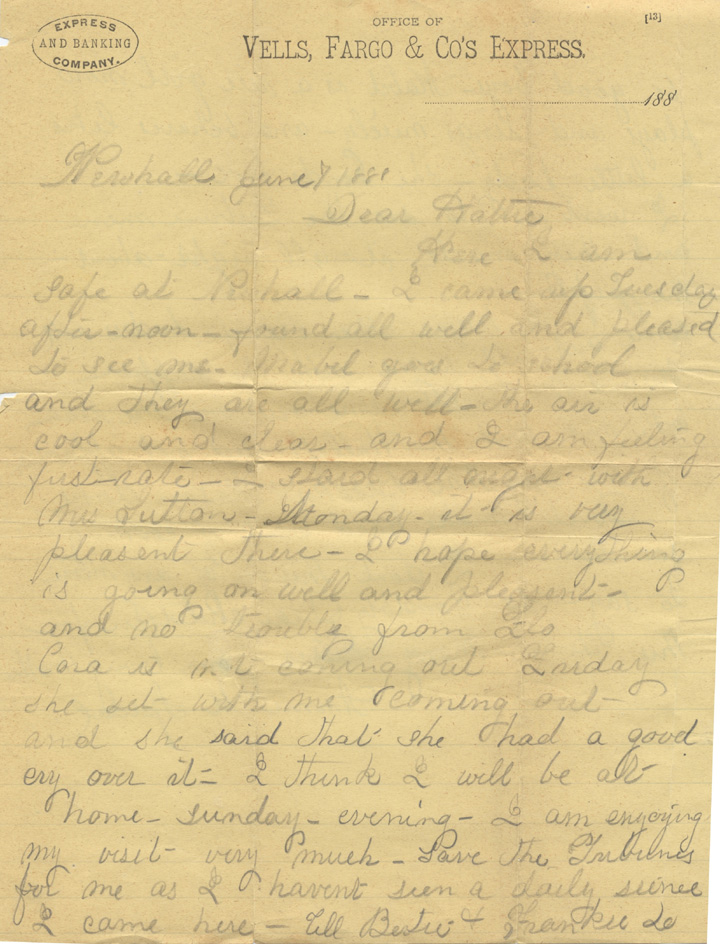 EXPRESS
AND BANKING
COMPANY.
OFFICE OF
[13]
VELLS, FARGO & CO'S EXPRESS.
188
Newhall June 7 188
Dear
Here I am
safe at Newhall - I came up Tuesday
after-noon - found all well and pleased
to see me - Mabel goes to school
and they are all well - the air is
cool and clear - and I am feeling
first-rate - I staid all night with
Mrs Sutton - Monday - it is very
pleasent there - I hope everything
is going on well and pleasent -
and no trouble from
Cora is not coming out
she set with me coming out -
and she said that she had a good
cry over it - I think I will be at
home - sunday - evening - I am enjoying
my visit very much - Save the Tribunes
for me as I havent seen a daily sience
I came here - Tell Bertie & Frankie to